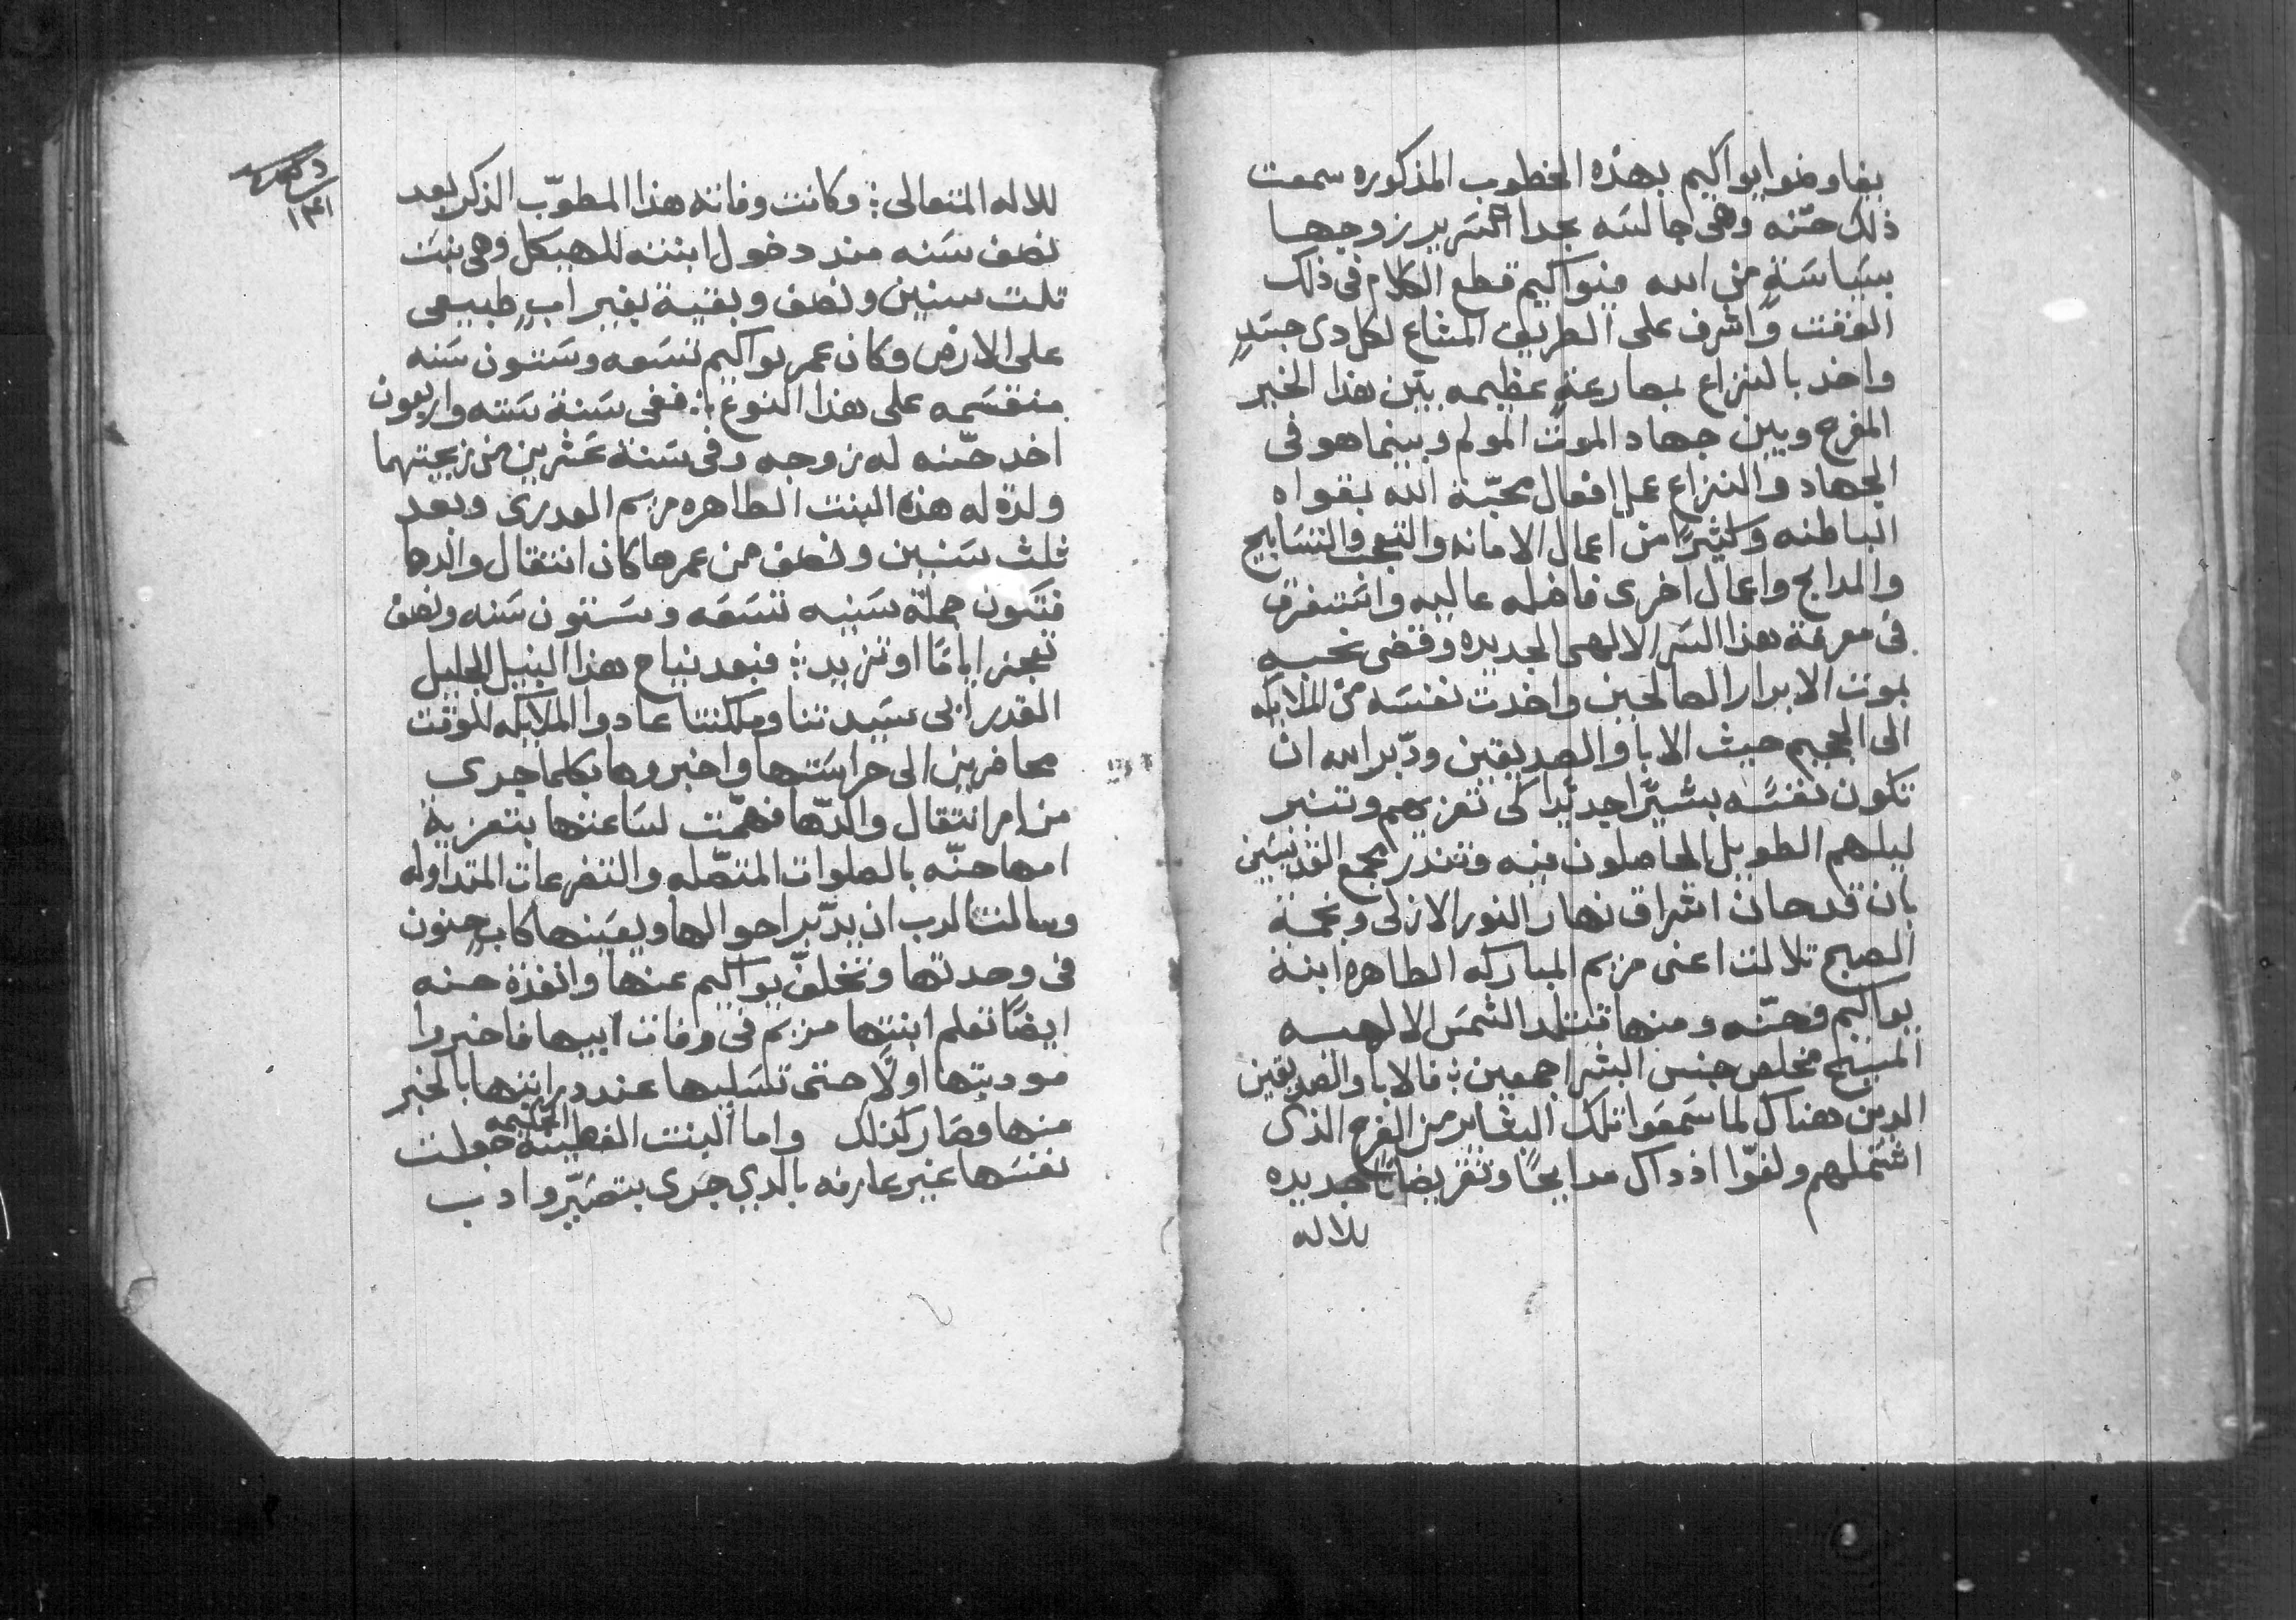 يفاوضوا يواكيم بهذه الخطوب المذكوره سمعت
ذلك حنّه وهى جالسَه بجدا السَرير زوجها
بسَياسَةٍ من الله فيواكيم قطع الكلام فى ذلك
الوقت واشرف على الطريق المشاع لكل دى جسَدٍ
واخد بالنزاع بمصارعةٍ عظيمه بين هذا الخبر
المفرح وبين جهاد الموت المولم وبينما هو فى
الجهاد والنزاع عمل افعال محبّة الله بقواه
الباطنه وكثيرًا من اعمال الامانه والتعجب والتسَابيح
والمدايح واعمال اخرى فاضله عاليه واستغرق
فى معرفة هذا السَر الالهى الجديده وقضى نحبه
بموت الابرار الصالحين واخدت نفسَه من الملايكه
الى الجحيم حيث الابا والصديقين ودّبر الله ان
تكون نفسَه بشيرًا جديدًا كى تعزيهم وتنير
ليلهم الطويل الحاصلون فيه وتندر مجمع القديسَين
بان قد حان اشراق نهار النور الازلى ونجمة
الصبح تلالت اعنى مريم المباركه الطاهره ابنة
يواكيم وحنّه ومنها تتلد الشمسَ الالهيه
المسَيح مخلص جنس البشر اجمعين ؛ فالابا والصديقين
الدين هناك لما سَمعَوا تلك البشاير من الفرح الذى
اشتملهم ولفوّا اذداك مدايحًا وتقريضاتًا جديده
للاله
١٣١
للاله المتعالى ؛ وكانت وفاته هذا المطوّب الذكر بعد
نصف سَنه مند دخول ابنته للهيكل وهى بنت
تلت سنين ونصف وبقية بغير ابٍ طبيعى
على الارض وكان عمر يواكيم تسَعه وسَتون سَنه
منقسَمه على هذا النوع ؛ ففى سَنة سَته واربعون
اخد حنّه له زوجه وفى سَنة عَشرين من زيجتهما
ولدة له هذه البنت الطاهره مريم العدرى وبعد
ثلث سَنين ونصف من عمرها كان انتقال والدها
فتكون جملة سَنيه تسَعَه وسَتون سَنه ونصف
تعجز ايامًا او تزيد ؛ فبعد نياح هذا النبيل الجليل
القدر ابى سَيدتنا وملكتنا عادوا الملايكه للوقت
محاضرين الى حراستها واخبروها بكلما جرى
من امر انتقال والدّها فهمّت لسَاعتها بتعزية
امها حنّه بالصلوات المتصّله والتضرعات المتداوله
وسالت الرب ان يدّبر احوالها ويعَينها كابٍ حنون
فى وحدتها وتخلفّ يواكيم عنها وانفدة حنه
ايضًا تعلم ابنتها مريم فى وفات ابيها فاخبروا
مودبتها اولًا حتى تسَليها عند درايتها بالخبر
منها وصَار كذلك واما البنت الفطينة الحكيمه جعلت
نفسَها غير عارفه بالدي جرى بتصَبّر وادب